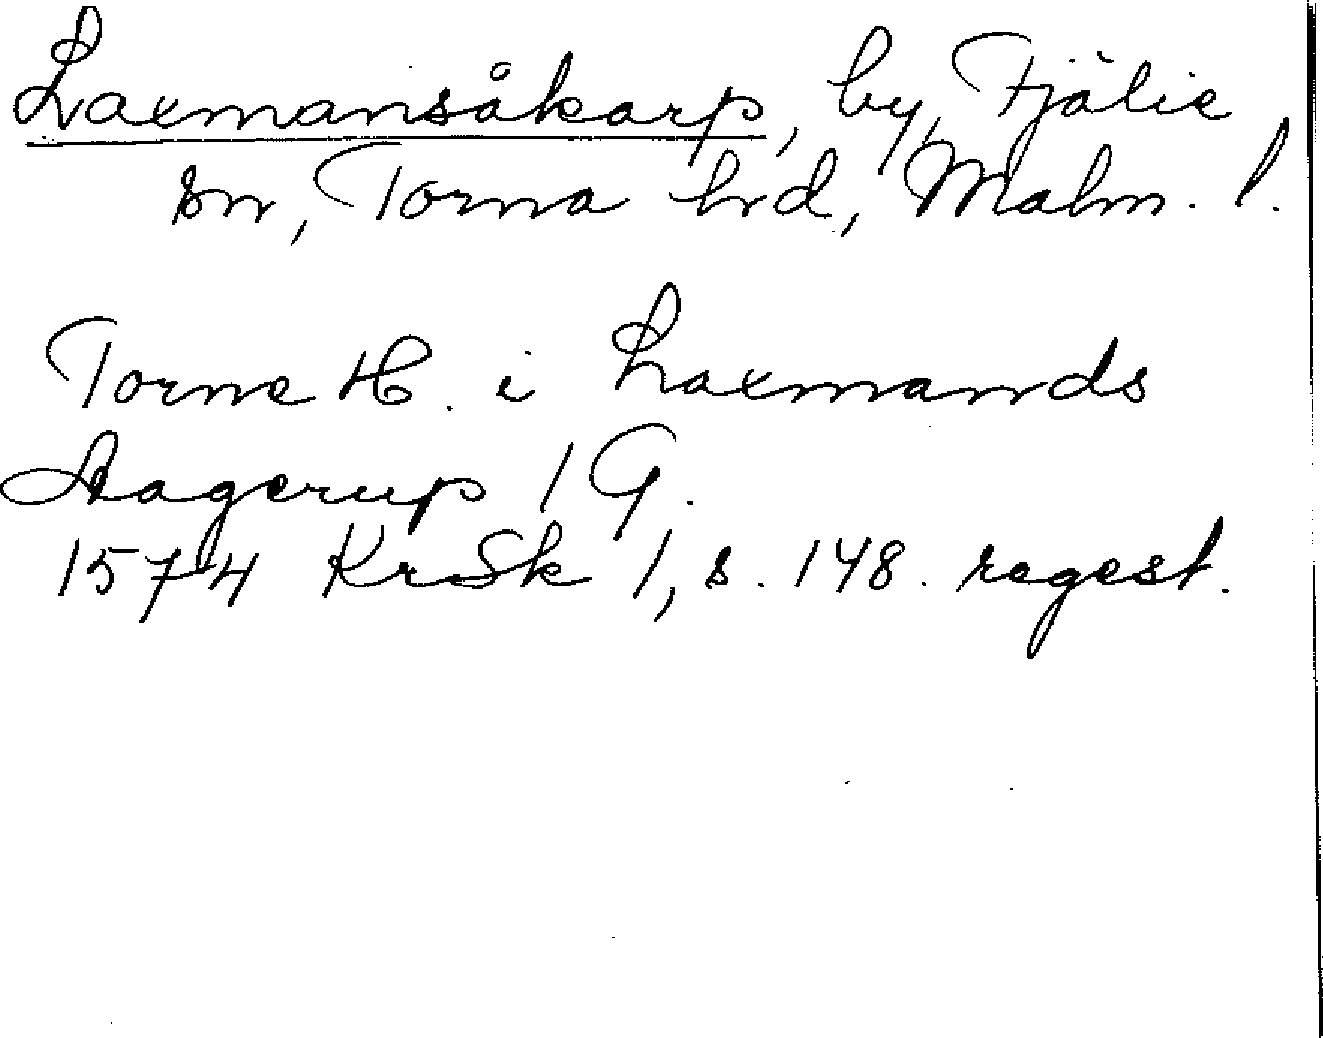 Laxmansåkarp, by, Fjälie
sn, Torna hrd, Malm. l.
Torne H. i Laxmands
Aagerup 1 G.
1574 KrSk 1, s. 148. regest.